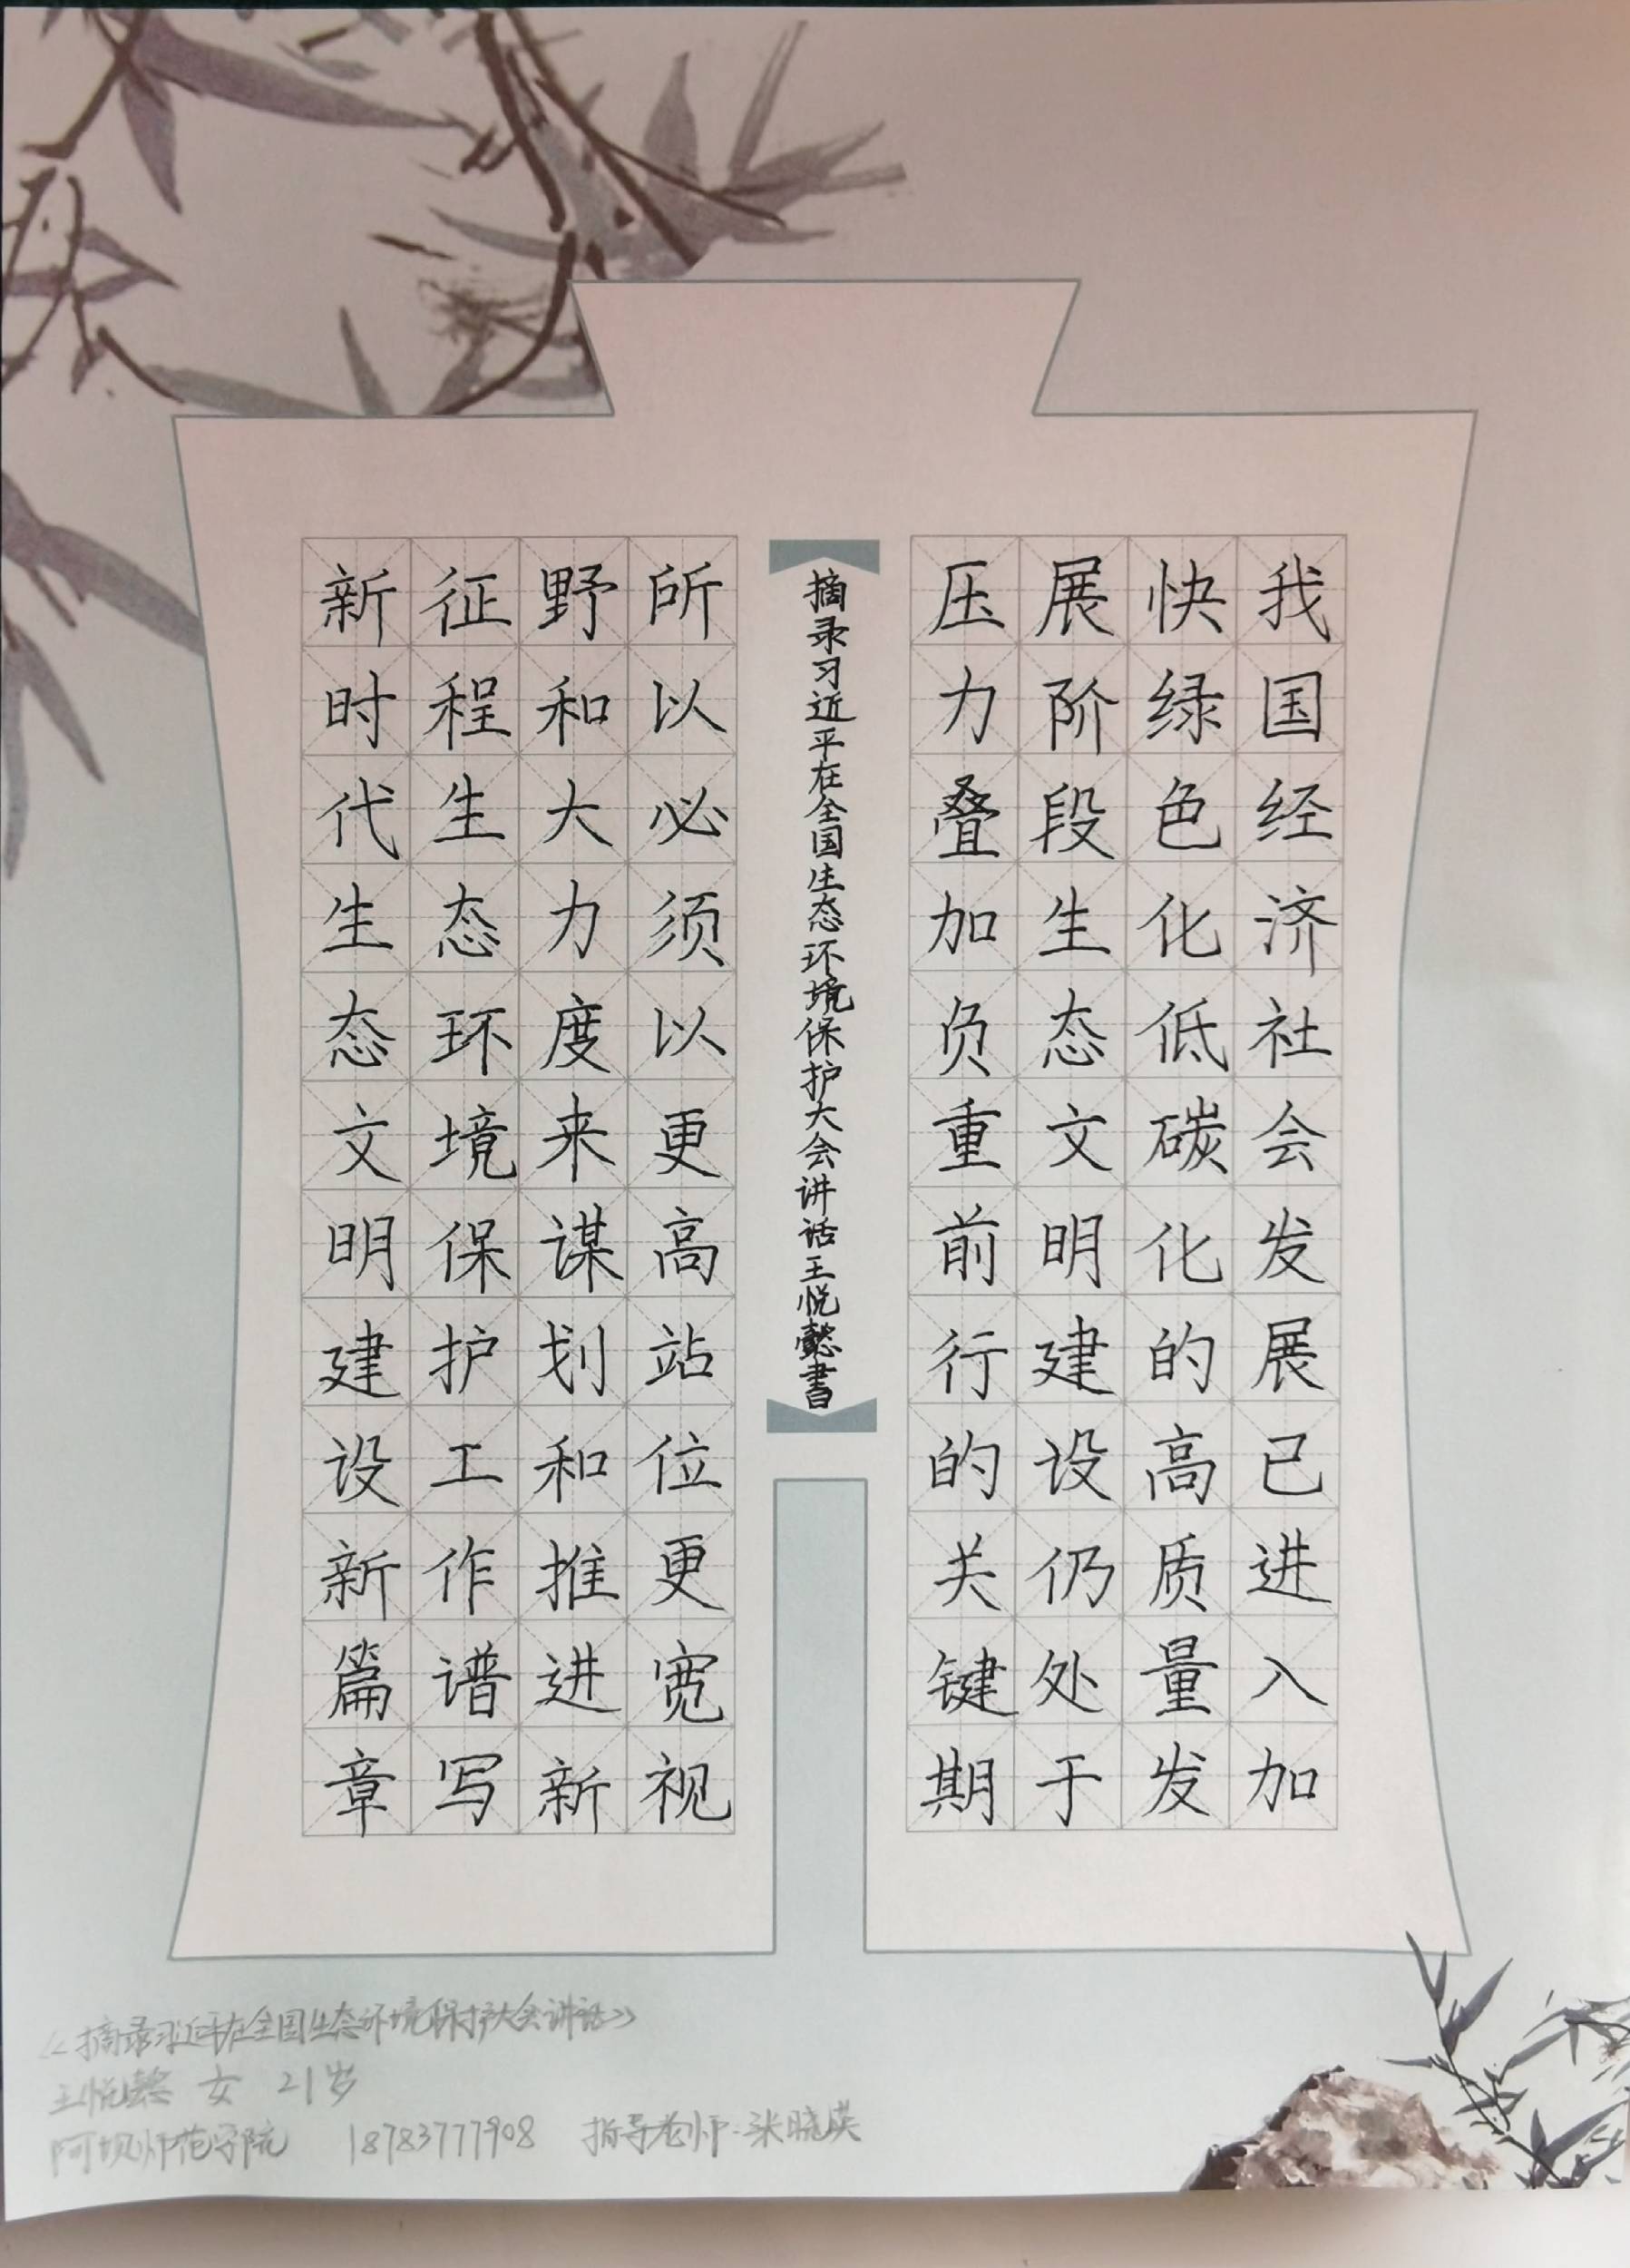 我国经济社会发展已进入加
快绿色化低碳化的高质量发
展阶段生态文明建设仍处于
压力叠加负重前行的关键期
摘录习近平在全国生态环境保护大会讲话王悦懿書
所以必须以更高站位更宽视
野和大力度来谋划和推进新
征程生态环境保护工作谱写
新时代生态文明建设新篇章
《摘录习近平在全国生态环境保护大会讲话》
王悦懿 女 21岁
阿坝师范学院 18783777908 指导老师:张晓英